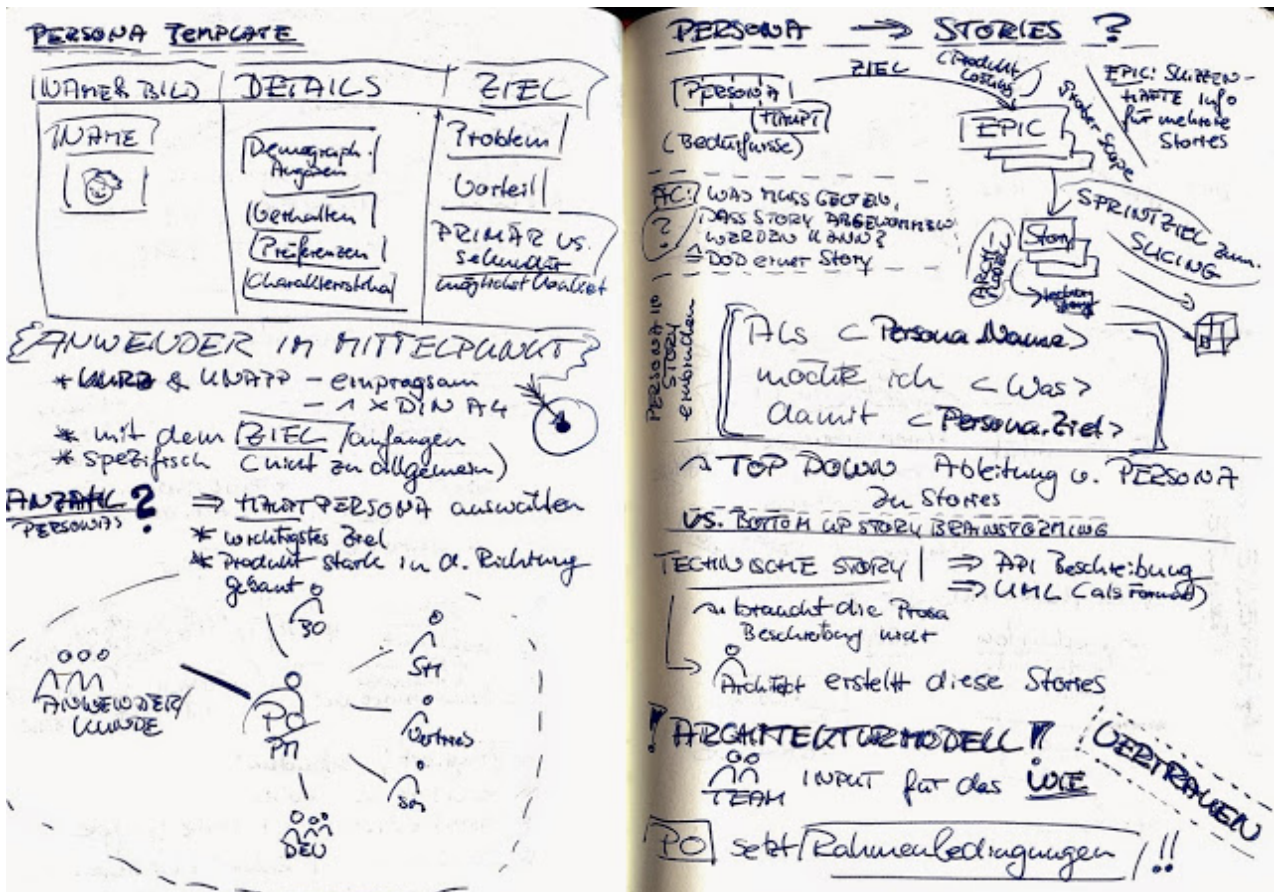 PERSONA TEMPLATE
NAME & BILD
DETAILS
ZIEL
NAME
Demograph. Angaben
Verhalten
Präferenzen
Charakteristika
Problem
Vorteil
PRIMÄR VS.
sekundär
möglichst konkret
ANWENDER IM MITTELPUNKT
* KURZ & KNAPP - einprägsam
- 1 x DIN A4
* mit dem ZIEL anfangen
* spezifisch (nicht zu allgemein)
ANZAHL ?
PERSONAS
⇒ HAUPTPERSONA auswählen
* wichtigstes Ziel
* Produkt stark in d. Richtung
gebaut
BO
SM
Vertrieb
DEV
PO
PM
ANWENDER/
KUNDE
PERSONA → STORIES ?
Persona
HAUPT
(Bedürfnisse)
ZIEL
(Produkt
Lösung)
EPIC
grober Scope
EPIC: SKIZZEN-
HAFTE Info
für mehrere
Stories
AC:
?
WAS MUSS GELTEN,
DASS STORY ABGENOMMEN
WERDEN KANN?
≙ DOD einer Story
Story
SPRINTZIEL zum
SLICING
PERSONA in
STORY
einbinden
Als <Persona.Name>
möchte ich <Was>
damit <Persona.Ziel>
TOP DOWN Ableitung v. PERSONA
zu Stories
VS. BOTTOM UP STORY BRAINSTORMING
TECHNISCHE STORY
⇒ API Beschreibung
⇒ UML (als Format)
braucht die Prosa
Beschreibung nicht
Architekt erstellt diese Stories
! ARCHITEKTURMODELL !!
TEAM INPUT für das WIE
VERTRAUEN
PO setzt Rahmenbedingungen !!